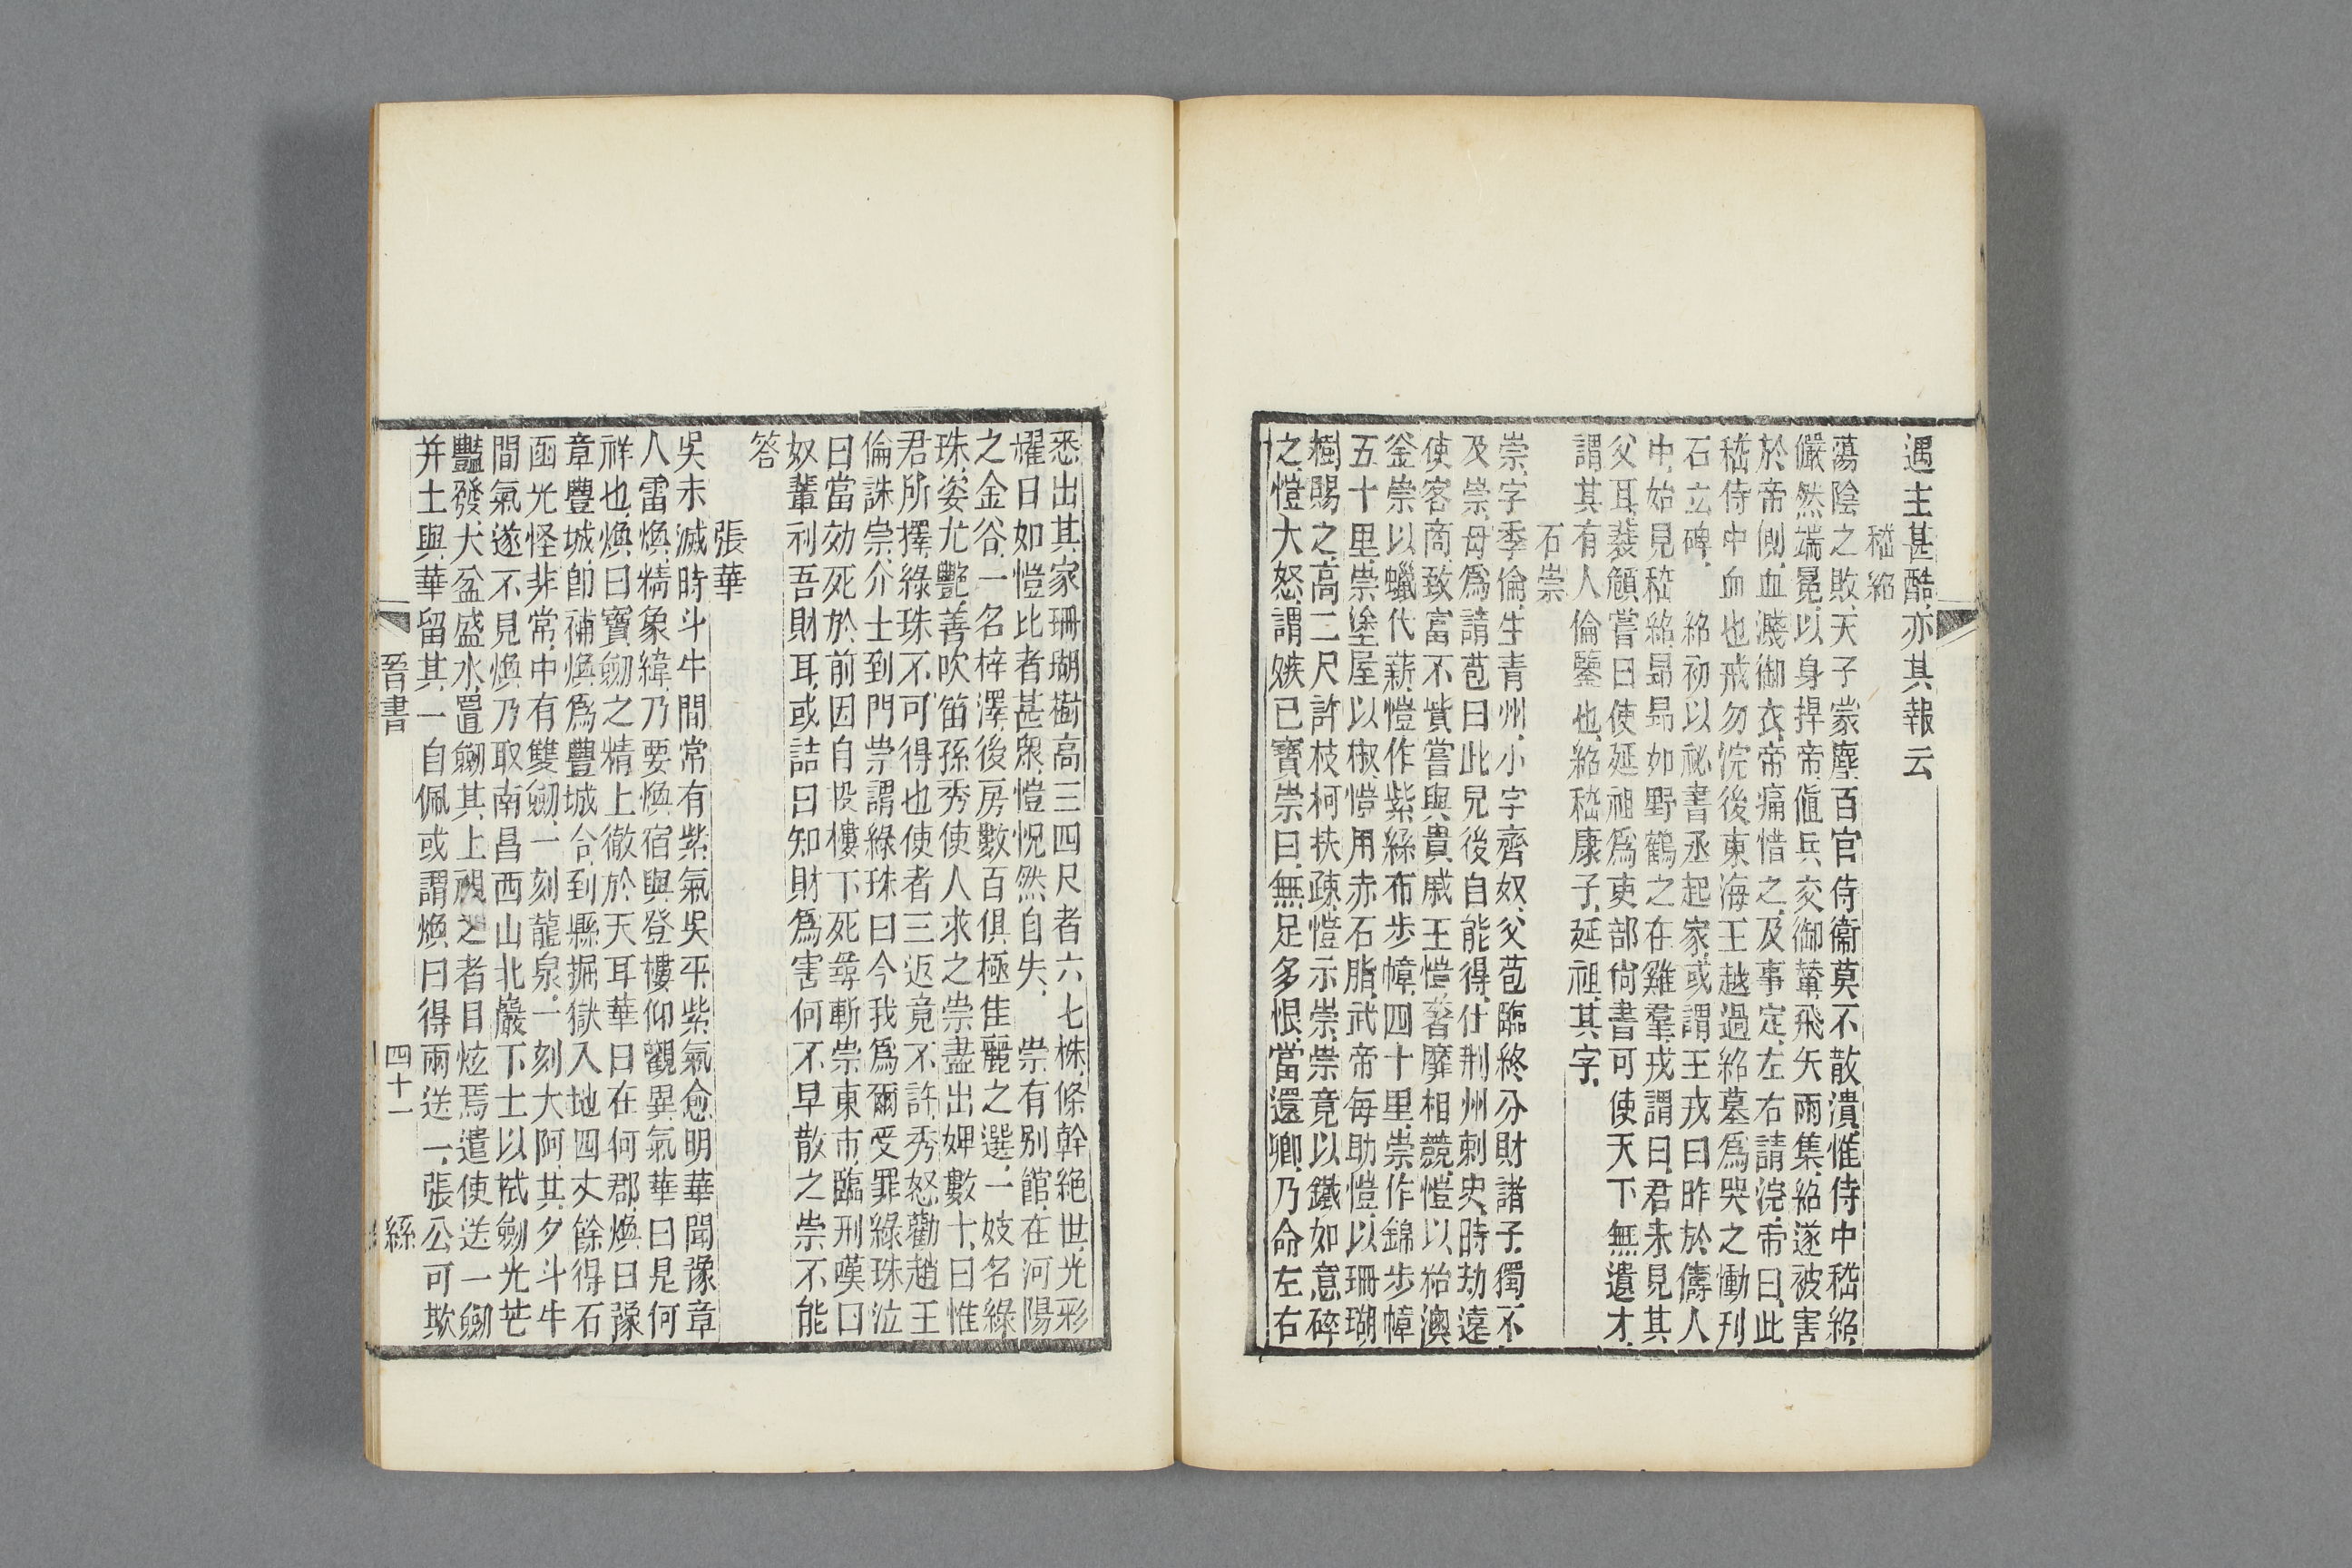 遇主甚酷亦其報云
嵇紹
蕩陰之敗天子蒙塵百官侍衞莫不散潰惟侍中嵇紹
儼然端冕以身捍帝値兵交御輦飛矢雨集紹遂被害
於帝側血濺御衣帝痛惜之及事定左右請浣帝曰此
嵇侍中血也戒勿浣後東海王越過紹墓爲哭之慟刋
石立碑 紹初以祕書丞起家或謂王戎曰昨於儔人
中始見嵇紹昻昻如野鶴之在雞羣戎謂曰君未見其
父耳裴頠嘗曰使延祖爲吏部尙書可使天下無遺才
謂其有人倫鑒也紹嵇康子延祖其字
石崇
崇字季倫生青州小字齊奴父苞臨終分財諸子獨不
及崇母爲請苞曰此兒後自能得仕荆州刺史時劫遠
使客商致富不貲嘗與貴戚王愷奢靡相競愷以粭澳
釜崇以蠟代薪愷作紫絲布步幛四十里崇作錦步幛
五十里崇塗屋以椒愷用赤石脂武帝每助愷以珊瑚
樹賜之高二尺許枝柯扶疎愷示崇崇竟以鐵如意碎
之愷大怒謂嫉已寶崇曰無足多恨當還卿乃命左右
悉出其家珊瑚樹高三四尺者六七株條幹絶世光彩
燿日如愷比者甚衆愷怳然自失 崇有别館在河陽
之金谷一名梓澤後房數百俱極隹麗之選一妓名綠
珠姿尤艷善吹笛孫秀使人求之崇盡出婢數十曰惟
君所擇綠珠不可得也使者三返竟不許秀怒勸趙王
倫誅崇介士到門崇謂綠珠曰今我爲爾受罪綠珠泣
曰當効死於前因自投樓下死尋斬崇東市臨刑嘆曰
奴輩利吾財耳或詰曰知財爲害何不早散之崇不能
答
張華
吳未滅時斗牛間常有紫氣吳平紫氣愈明華聞豫章
人雷煥精象緯乃要煥宿與登樓仰觀異氣華曰是何
祥也煥曰寶劒之精上徹於天耳華曰在何郡煥曰豫
章豐城卽補煥爲豐城令到縣掘獄入地四丈餘得石
函光怪非常中有雙劒一刻龍泉一刻大阿其夕斗牛
間氣遂不見煥乃取南昌西山北巖下土以拭劒光芒
豔發大盆盛水置劒其上視之者目炫焉遣使送一劒
幷土與華留其一自佩或謂煥曰得兩送一張公可欺
晉書 四十一 絲